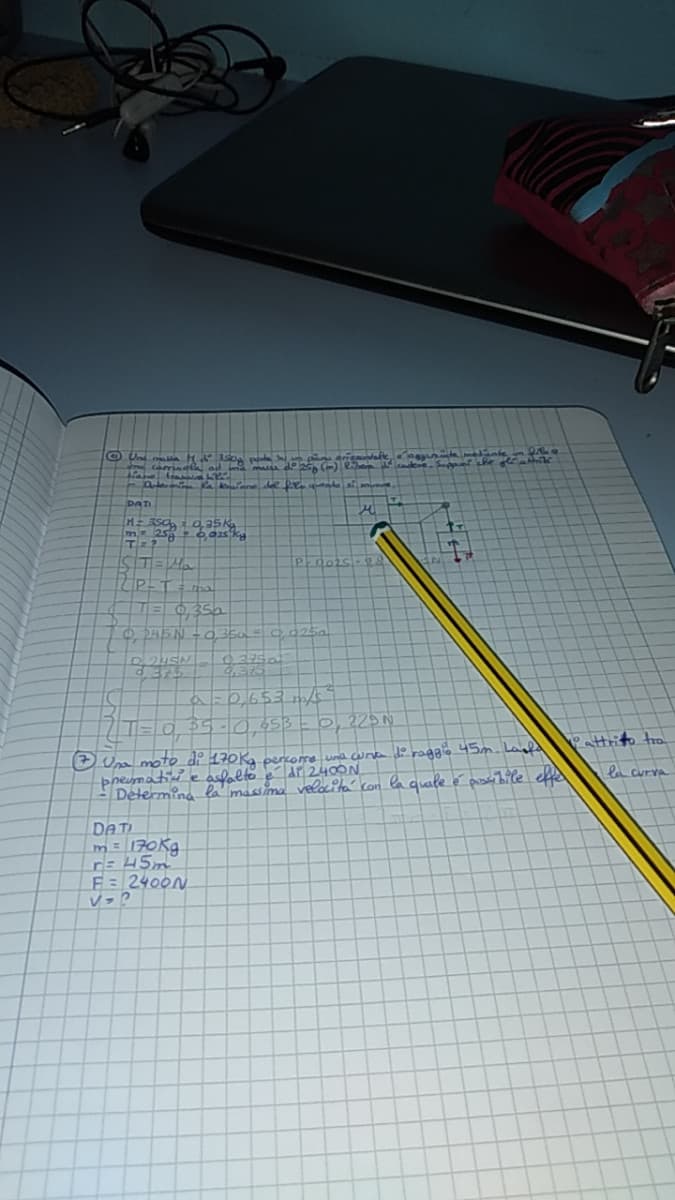 ⑥ Una massa M di 350g posta su un piano orizzontale, è agganciata mediante un filo e
una carrucola ad una massa di 25g (m) libera di cadere. Supponi che gli attriti
siano trascurabili.
- Determina la tensione del filo quando si muove.
DATI
M
T
M = 350g = 0,35Kg
m = 25g = 0,025Kg
T = ?
T = Ma
P = 0,025 · 9,8
P - T = ma
T = 0,35a
0,245N - 0,35a = 0,025a
0,245N = 0,375a
0,375 0,375
a = 0,653 m/s²
T = 0,35 · 0,653 = 0,229N
⑦ Una moto di 170Kg percorre una curva di raggio 45m. La attrito tra
pneumatici e asfalto é di 2400N
- Determina la massima velocità con la quale é possibile la curva
DATI
m = 170Kg
r = 45m
F = 2400N
V = ?